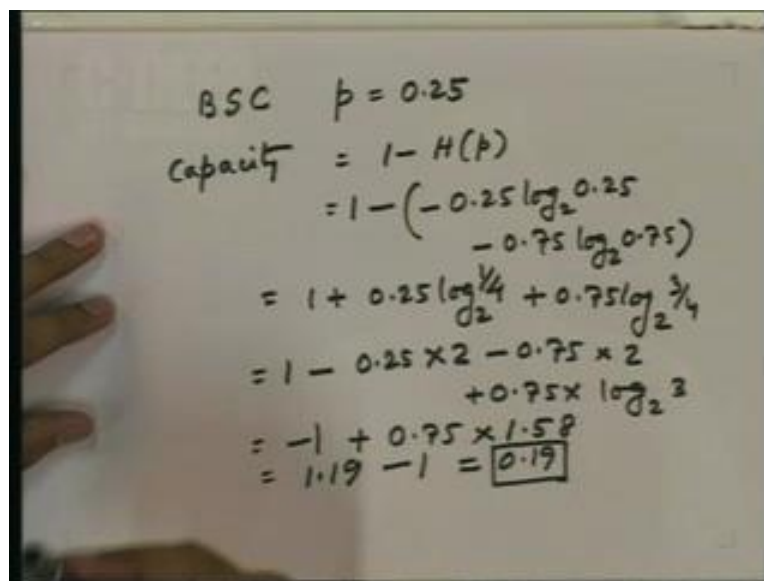 BSC p = 0.25
Capacity = 1 - H(p)
= 1 - (- 0.25 log₂ 0.25
- 0.75 log₂ 0.75)
= 1 + 0.25 log₂ 1/4 + 0.75 log₂ 3/4
= 1 - 0.25 × 2 - 0.75 × 2
+ 0.75 × log₂ 3
= -1 + 0.75 × 1.58
= 1.19 - 1 = 0.19